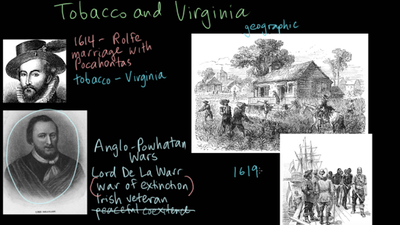 Tobacco and Virginia
geographic
1614 - Rolfe
marriage with
Pocahontas
tobacco - Virginia
Anglo-Powhatan
Wars
Lord De La Warr
(war of extinction)
Irish veteran
peaceful coexistence
1619: